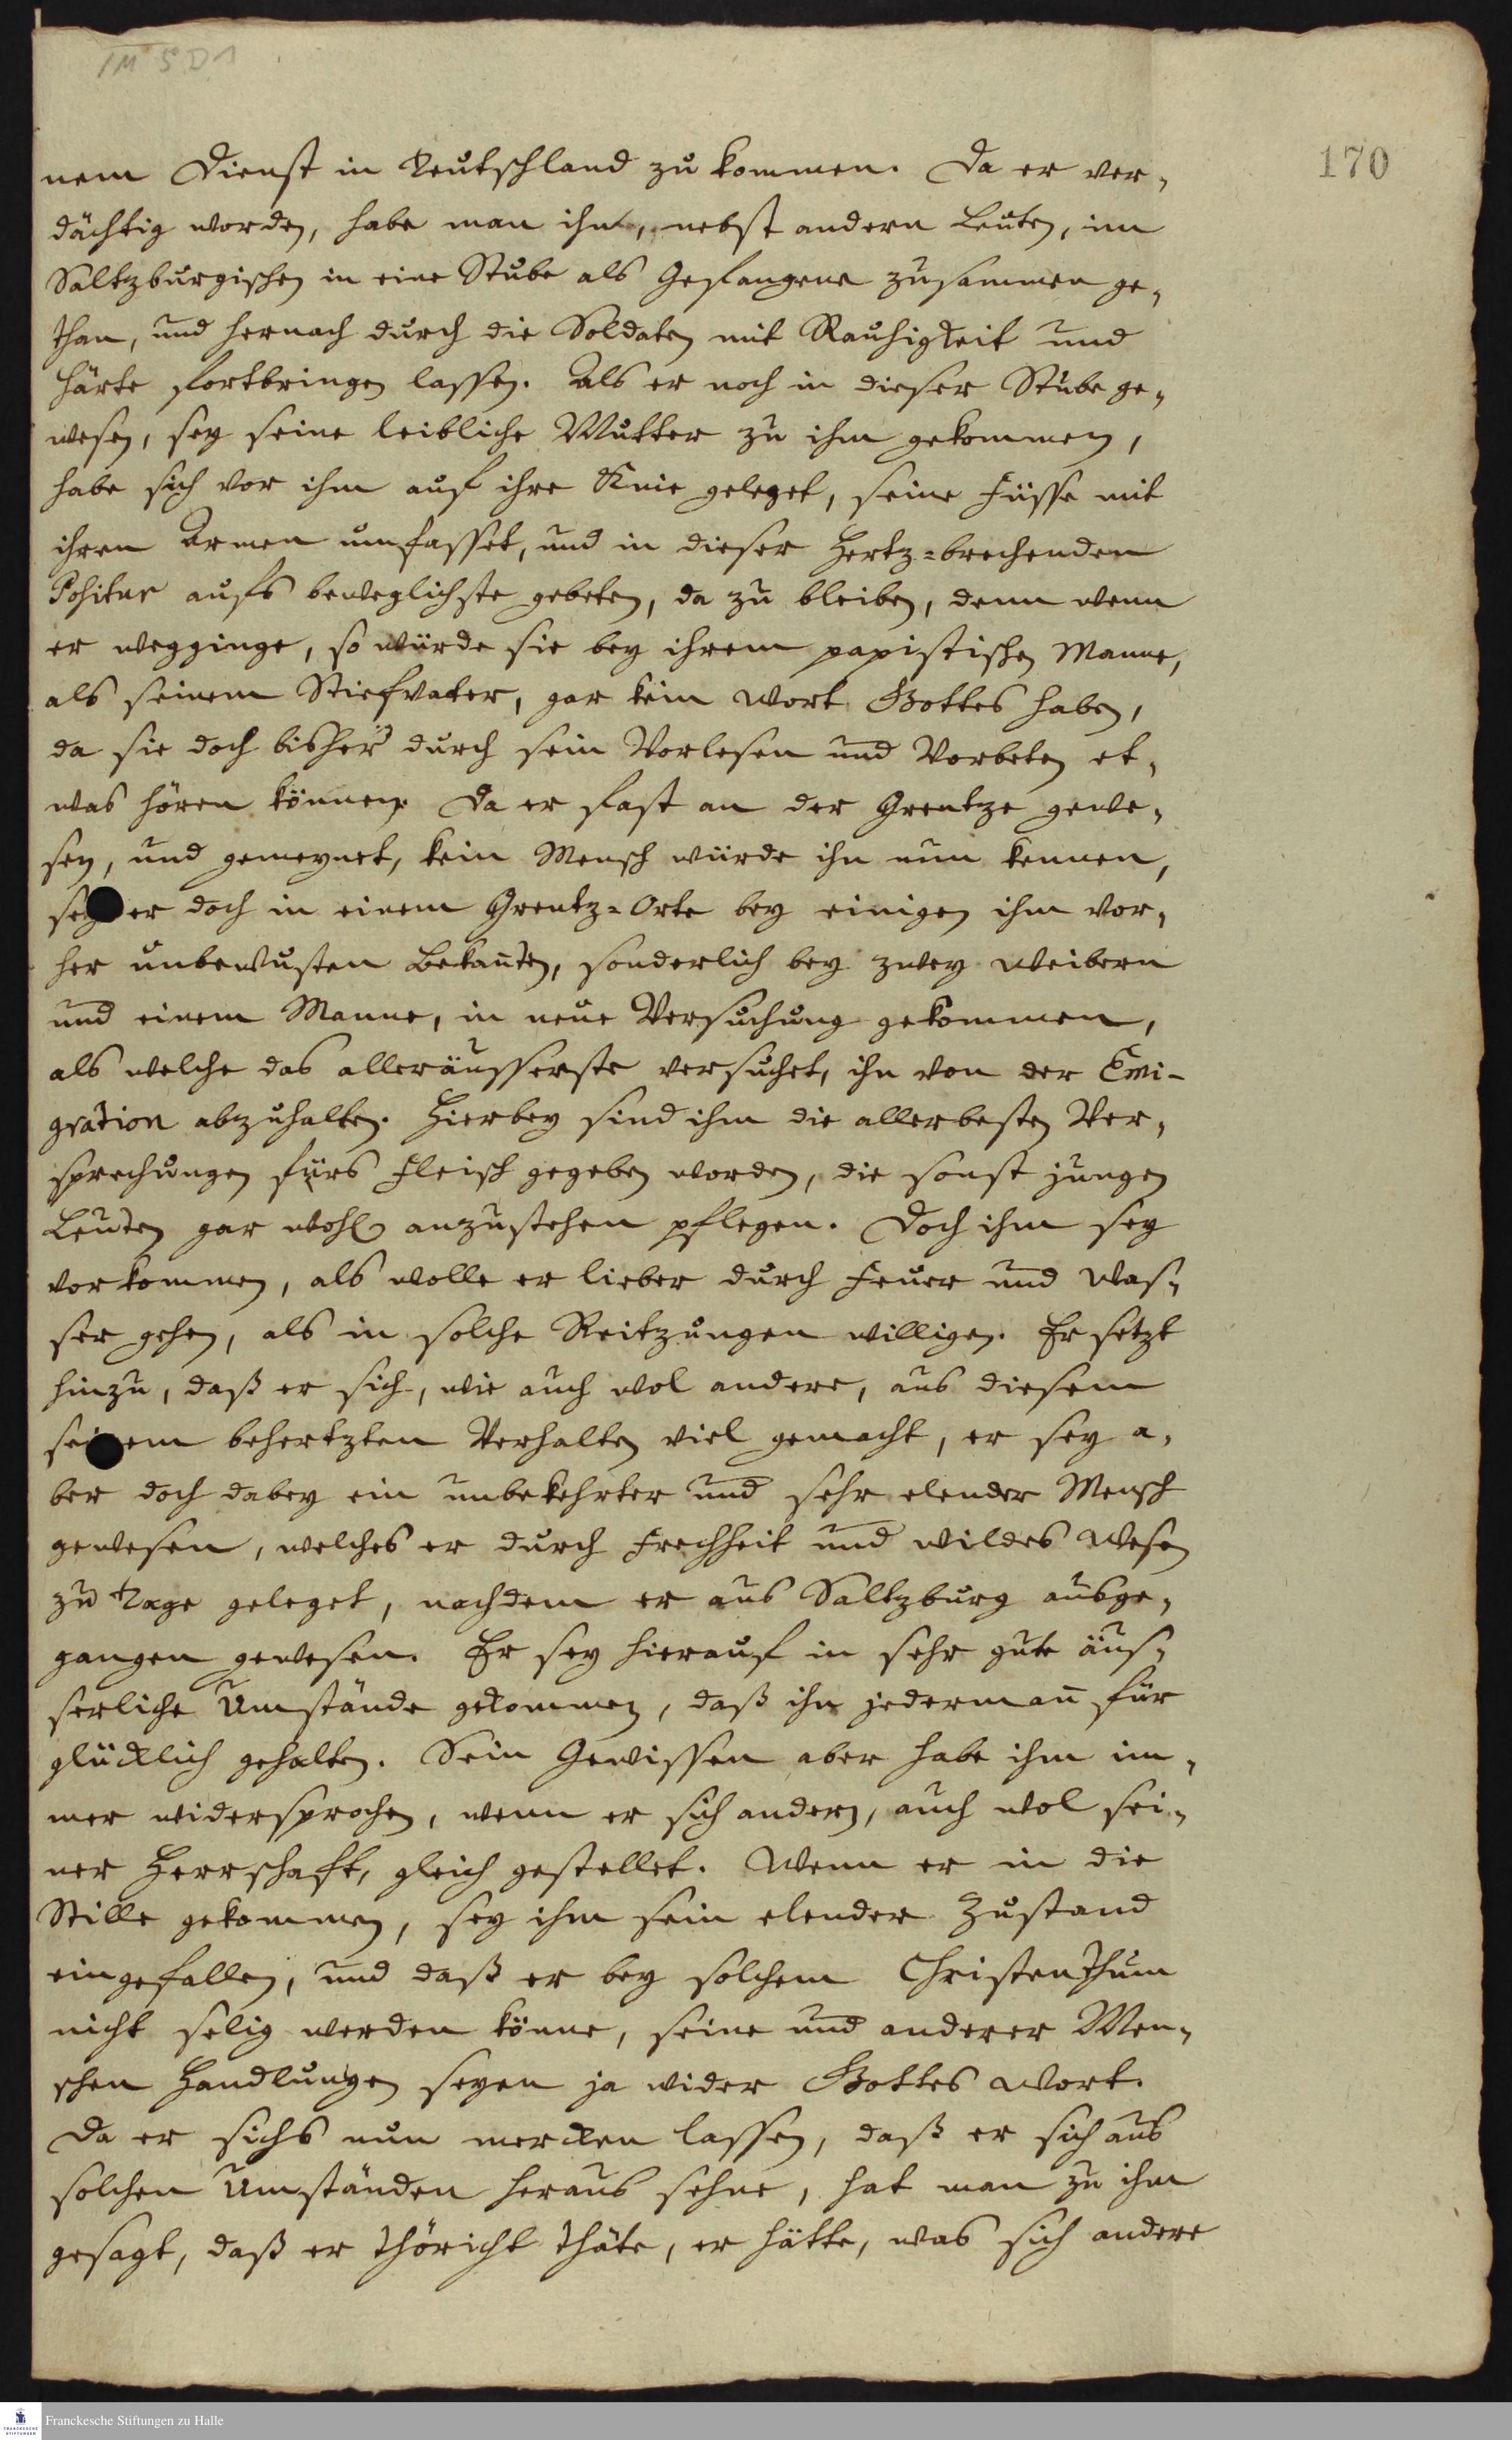 1M 5 D1
170
nem Dienst in Teutschland zu kommen. Da er ver-
dächtig worden, habe man ihn, nebst andern Leuten, im
Saltzburgischen in eine Stube als Gefangene zusammen ge-
than, und hernach durch die Soldaten mit Rauhigkeit und
Härte fortbringen lassen. Als er noch in dieser Stube ge-
wesen, sey seine leibliche Mutter zu ihm gekommen,
habe sich vor ihm auf ihre Knie geleget, seine Füsse mit
ihren Armen umfasset, und in dieser Hertz-brechenden
Positur aufs beweglichste gebeten, da zu bleiben, denn wenn
er wegginge, so würde sie bey ihrem papistischen Manne,
als seinem Stiefvater, gar kein Wort Gottes haben,
da sie doch bisher durch sein Vorlesen und Vorbeten et-
was hören können. Da er fast an der Grentze gewe-
sen, und gemeynet, kein Mensch würde ihn nun kennen,
sey er doch in einem Grentz-Orte bey einigen ihm vor-
her unbewusten Bekañten, sonderlich bey zwey Weibern
und einem Manne, in neue Versuchung gekommen,
als welche das alleräusserste versuchet, ihn von der Emi-
gration abzuhalten. Hierbey sind ihm die allerbesten Ver-
sprechungen fürs Fleisch gegeben worden, die sonst jungen
Leuten gar wohl anzustehen pflegen. Doch ihm sey
vorkommen, als wolle er lieber durch Feuer und Was-
ser gehen, als in solche Reitzungen willigen. Er setzt
hinzu, daß er sich, wie auch wol andere, aus diesem
seinem behertzten Verhalten viel gemacht, er sey a-
ber doch dabey ein unbekehrter und sehr elender Mensch
gewesen, welches er durch Frechheit und wildes Wesen
zu Tage geleget, nachdem er aus Saltzburg ausge-
gangen gewesen. Er sey hierauf in sehr gute äus-
serliche Umstände gekommen, daß ihn jedermañ für
glücklich gehalten. Sein Gewissen aber habe ihm im-
mer widersprochen, wenn er sich andern, auch wol sei-
ner Herrschaft, gleich gestellet. Wenn er in die
Stille gekommen, sey ihm sein elender Zustand
eingefallen, und daß er bey solchem Christenthum
nicht selig werden könne, seine und anderer Men-
schen Handlungen seyen ja wider Gottes Wort.
Da er sichs nun mercken lassen, daß er sich aus
solchen Umständen heraus sehne, hat man zu ihm
gesagt, daß er thöricht thäte, er hätte, was sich andere
FRANCKESCHE STIFTUNGEN
Franckesche Stiftungen zu Halle